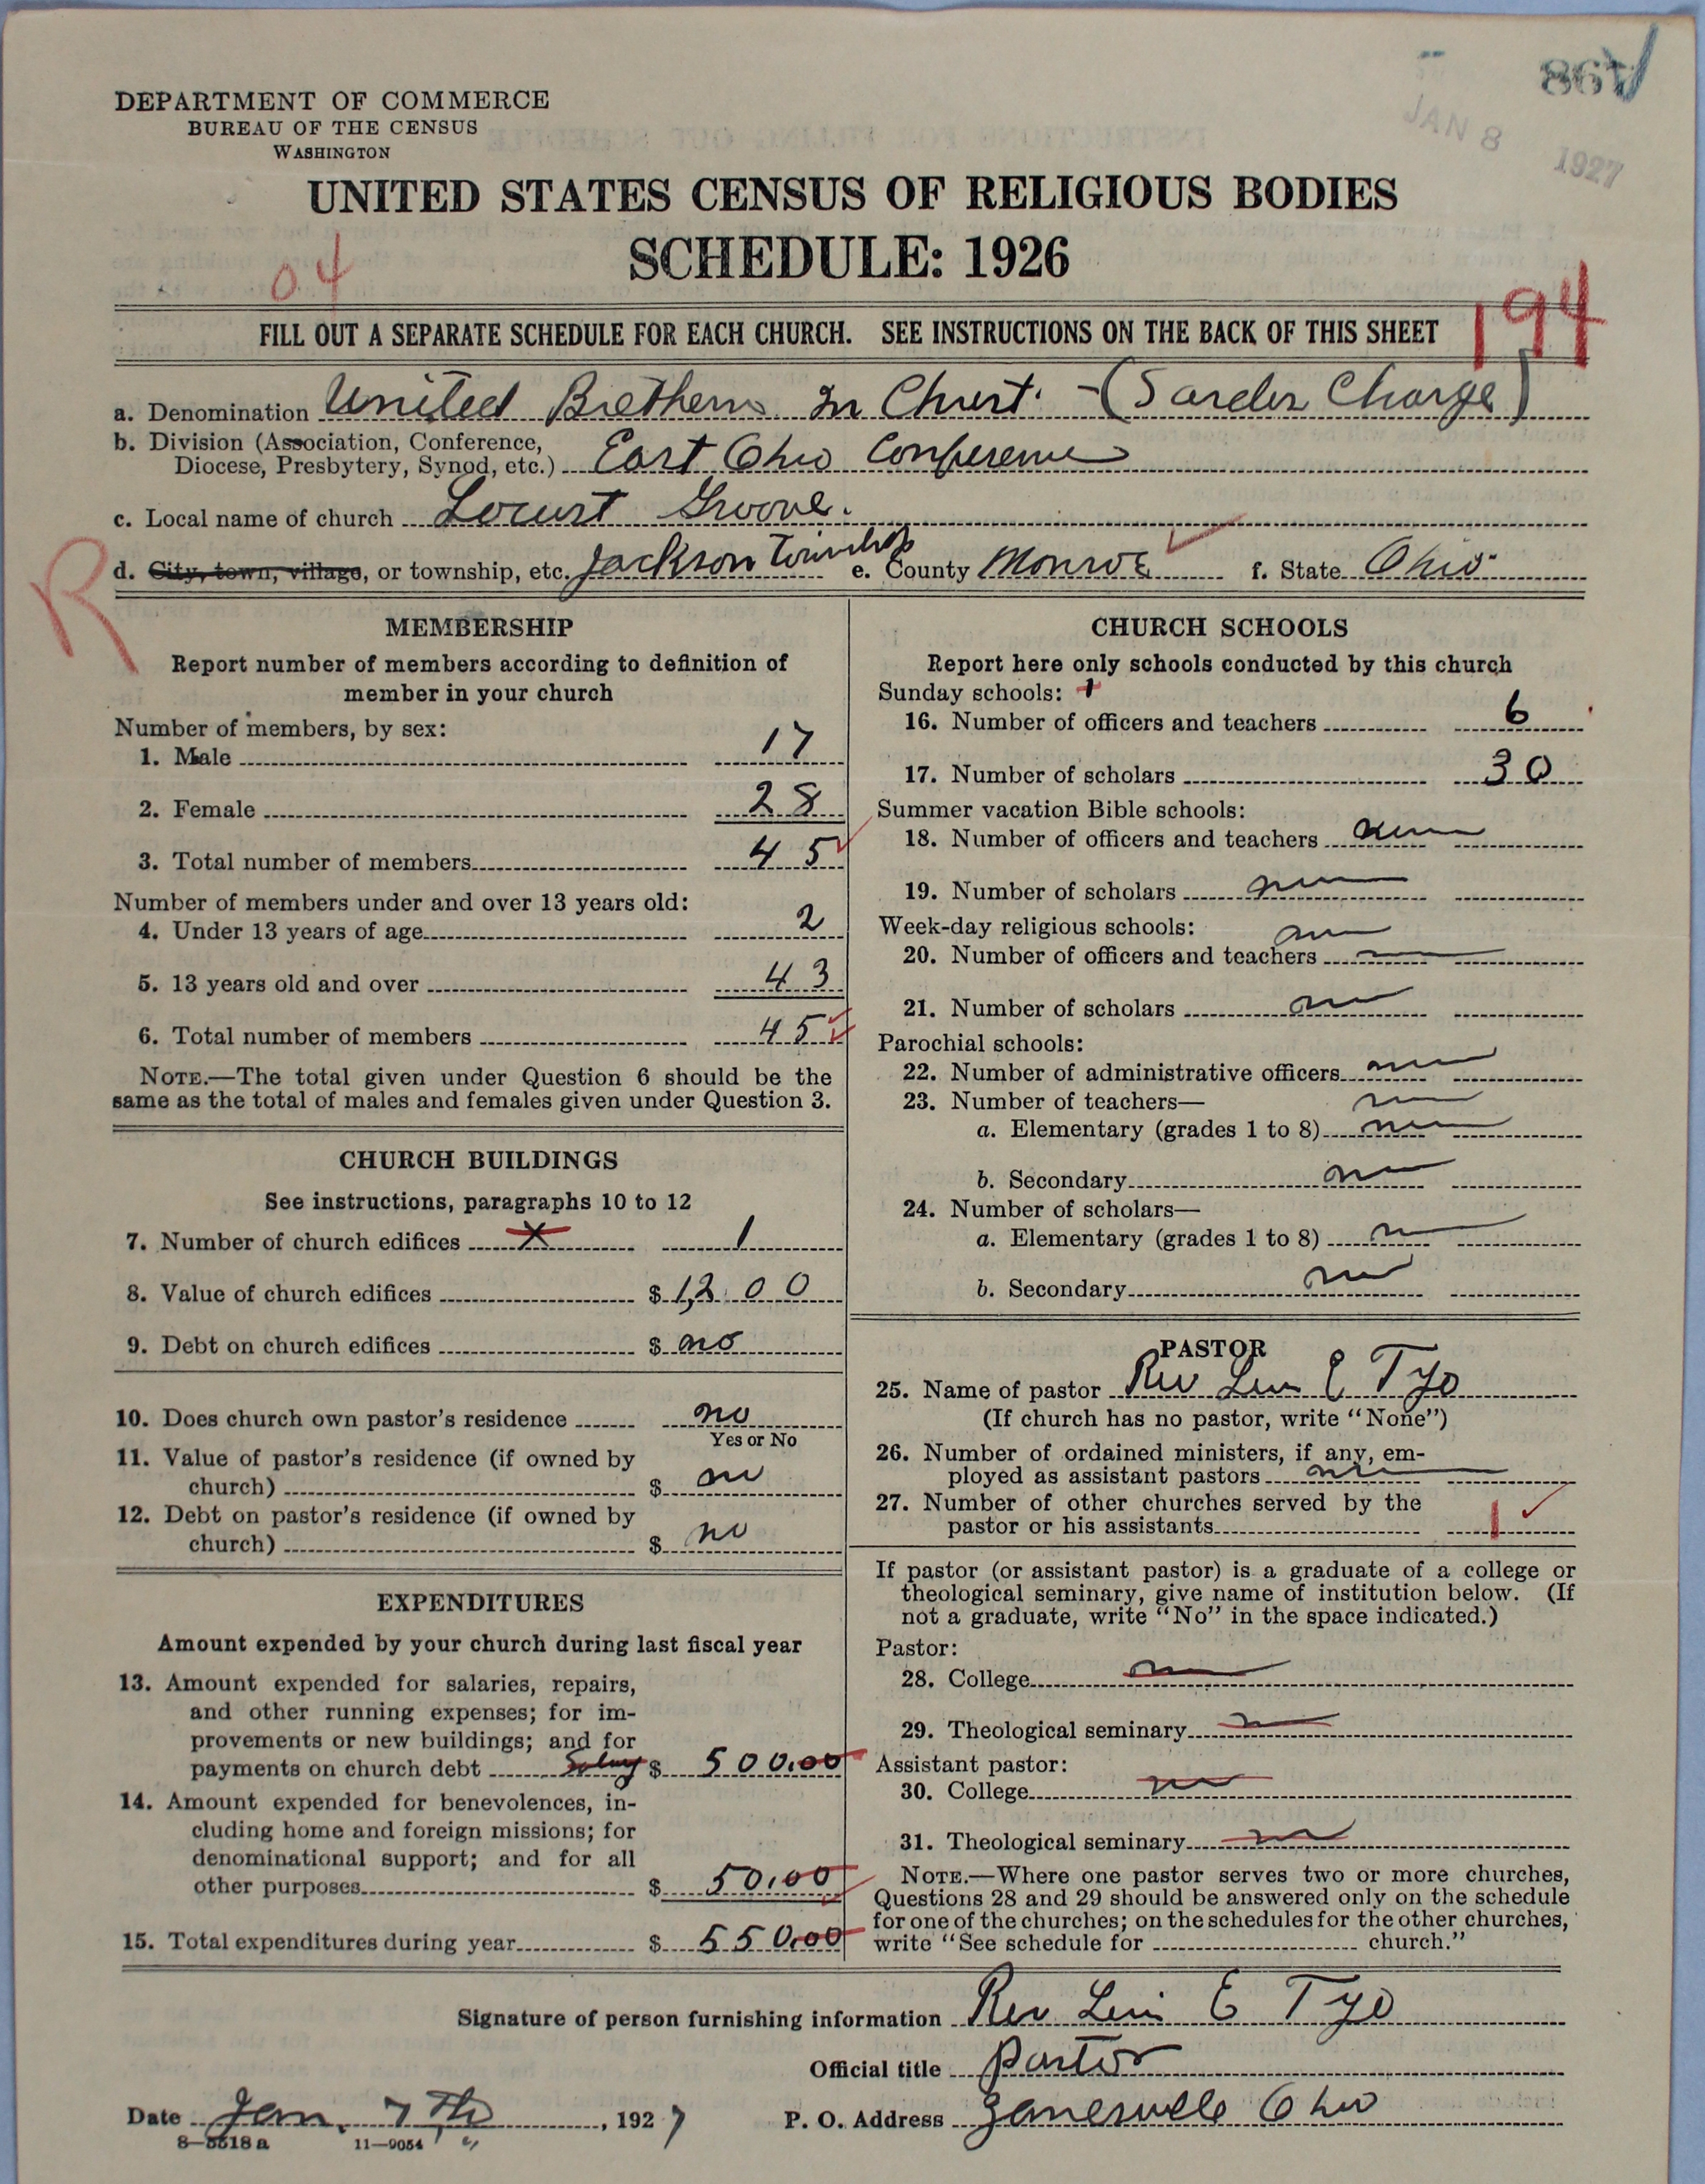 864
JAN 8 1927
DEPARTMENT OF COMMERCE
BUREAU OF THE CENSUS
WASHINGTON
UNITED STATES CENSUS OF RELIGIOUS BODIES
SCHEDULE: 1926
04
194
FILL OUT A SEPARATE SCHEDULE FOR EACH CHURCH. SEE INSTRUCTIONS ON THE BACK OF THIS SHEET
a. Denomination United Brethern In Christ - (Sarder Charge)
b. Division (Association, Conference,
Diocese, Presbytery, Synod, etc.) East Ohio Conference
c. Local name of church Locust Groove.
d. City, town, village, or township, etc. Jackson Township e. County Monroe f. State Ohio
R
MEMBERSHIP
Report number of members according to definition of
member in your church
Number of members, by sex:
1. Male 17
2. Female 28
3. Total number of members 45
Number of members under and over 13 years old:
4. Under 13 years of age 2
5. 13 years old and over 43
6. Total number of members 45
NOTE.—The total given under Question 6 should be the
same as the total of males and females given under Question 3.
CHURCH BUILDINGS
See instructions, paragraphs 10 to 12
7. Number of church edifices X 1
8. Value of church edifices $ 1,200
9. Debt on church edifices $ no
10. Does church own pastor's residence no
Yes or No
11. Value of pastor's residence (if owned by
church) $ no
12. Debt on pastor's residence (if owned by
church) $ no
EXPENDITURES
Amount expended by your church during last fiscal year
13. Amount expended for salaries, repairs,
and other running expenses; for im-
provements or new buildings; and for
payments on church debt Salary $ 500.00
14. Amount expended for benevolences, in-
cluding home and foreign missions; for
denominational support; and for all
other purposes $ 50.00
15. Total expenditures during year $ 550.00
CHURCH SCHOOLS
Report here only schools conducted by this church
Sunday schools: 1
16. Number of officers and teachers 6
17. Number of scholars 30
Summer vacation Bible schools:
18. Number of officers and teachers
19. Number of scholars
Week-day religious schools:
20. Number of officers and teachers
21. Number of scholars
Parochial schools:
22. Number of administrative officers
23. Number of teachers—
a. Elementary (grades 1 to 8)
b. Secondary
24. Number of scholars—
a. Elementary (grades 1 to 8)
b. Secondary
PASTOR
25. Name of pastor Rev Levi E Tyo
(If church has no pastor, write "None")
26. Number of ordained ministers, if any, em-
ployed as assistant pastors
27. Number of other churches served by the
pastor or his assistants 1
If pastor (or assistant pastor) is a graduate of a college or
theological seminary, give name of institution below. (If
not a graduate, write "No" in the space indicated.)
Pastor:
28. College
29. Theological seminary
Assistant pastor:
30. College
31. Theological seminary
NOTE.—Where one pastor serves two or more churches,
Questions 28 and 29 should be answered only on the schedule
for one of the churches; on the schedules for the other churches,
write "See schedule for church."
Signature of person furnishing information Rev Levi E Tyo
Official title Pastor
Date Jan. 7th, 1927 P. O. Address Zanesville Ohio
8—5518a 11—9054